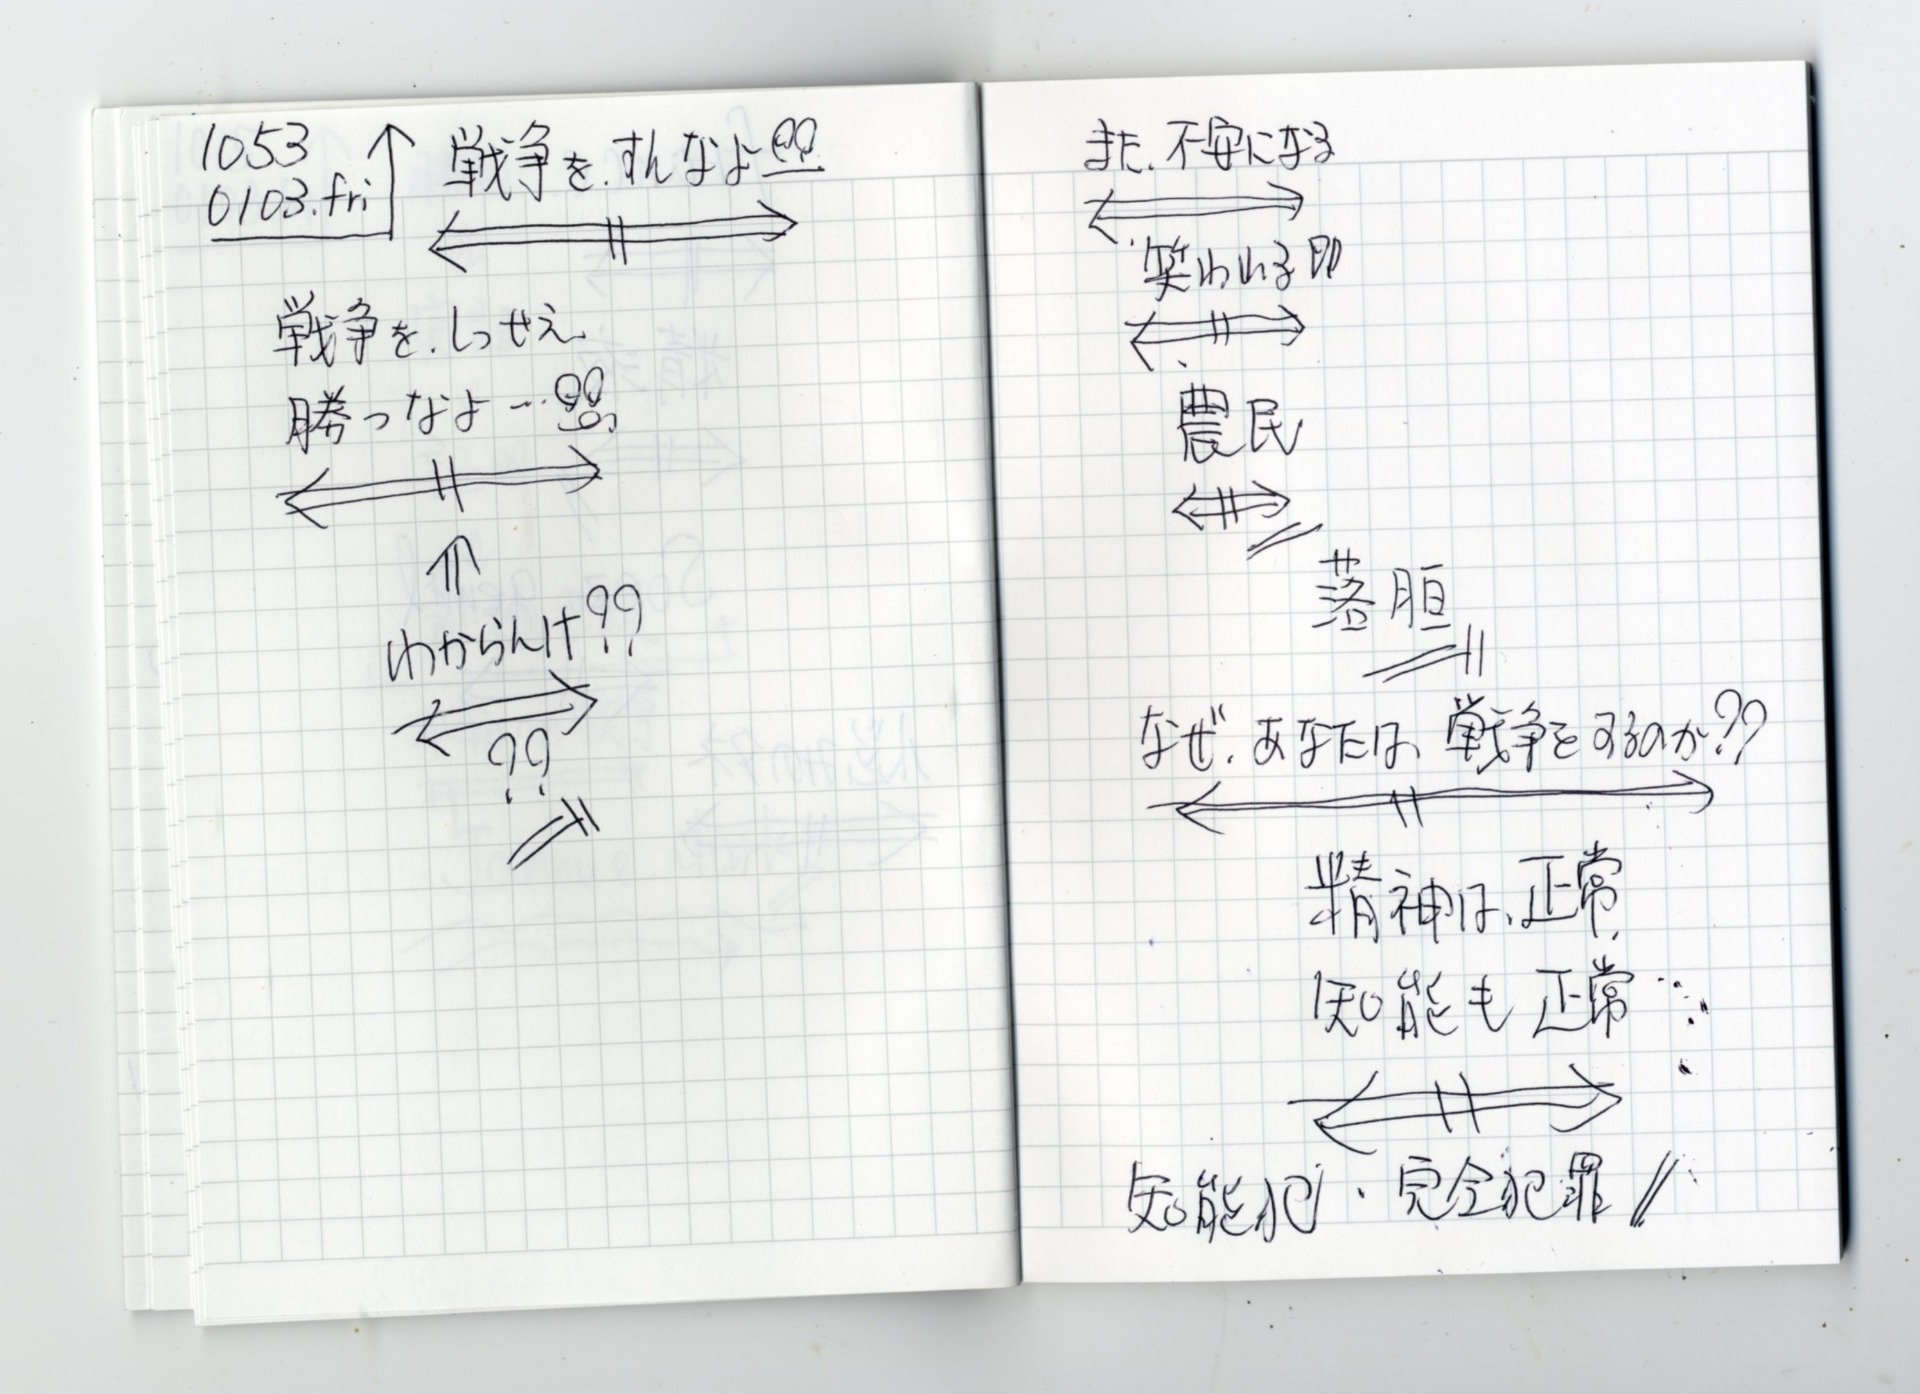 1053
0103.fri
戦争を.すんなよ!!
戦争を.しっせえ
勝つなよ…!!
わからんけ??
??
また.不安になる
笑われる即
農民
落胆
なぜ.あなたは、戦争をするのか??
精神は、正常
知能も正常
知能犯・完全犯罪